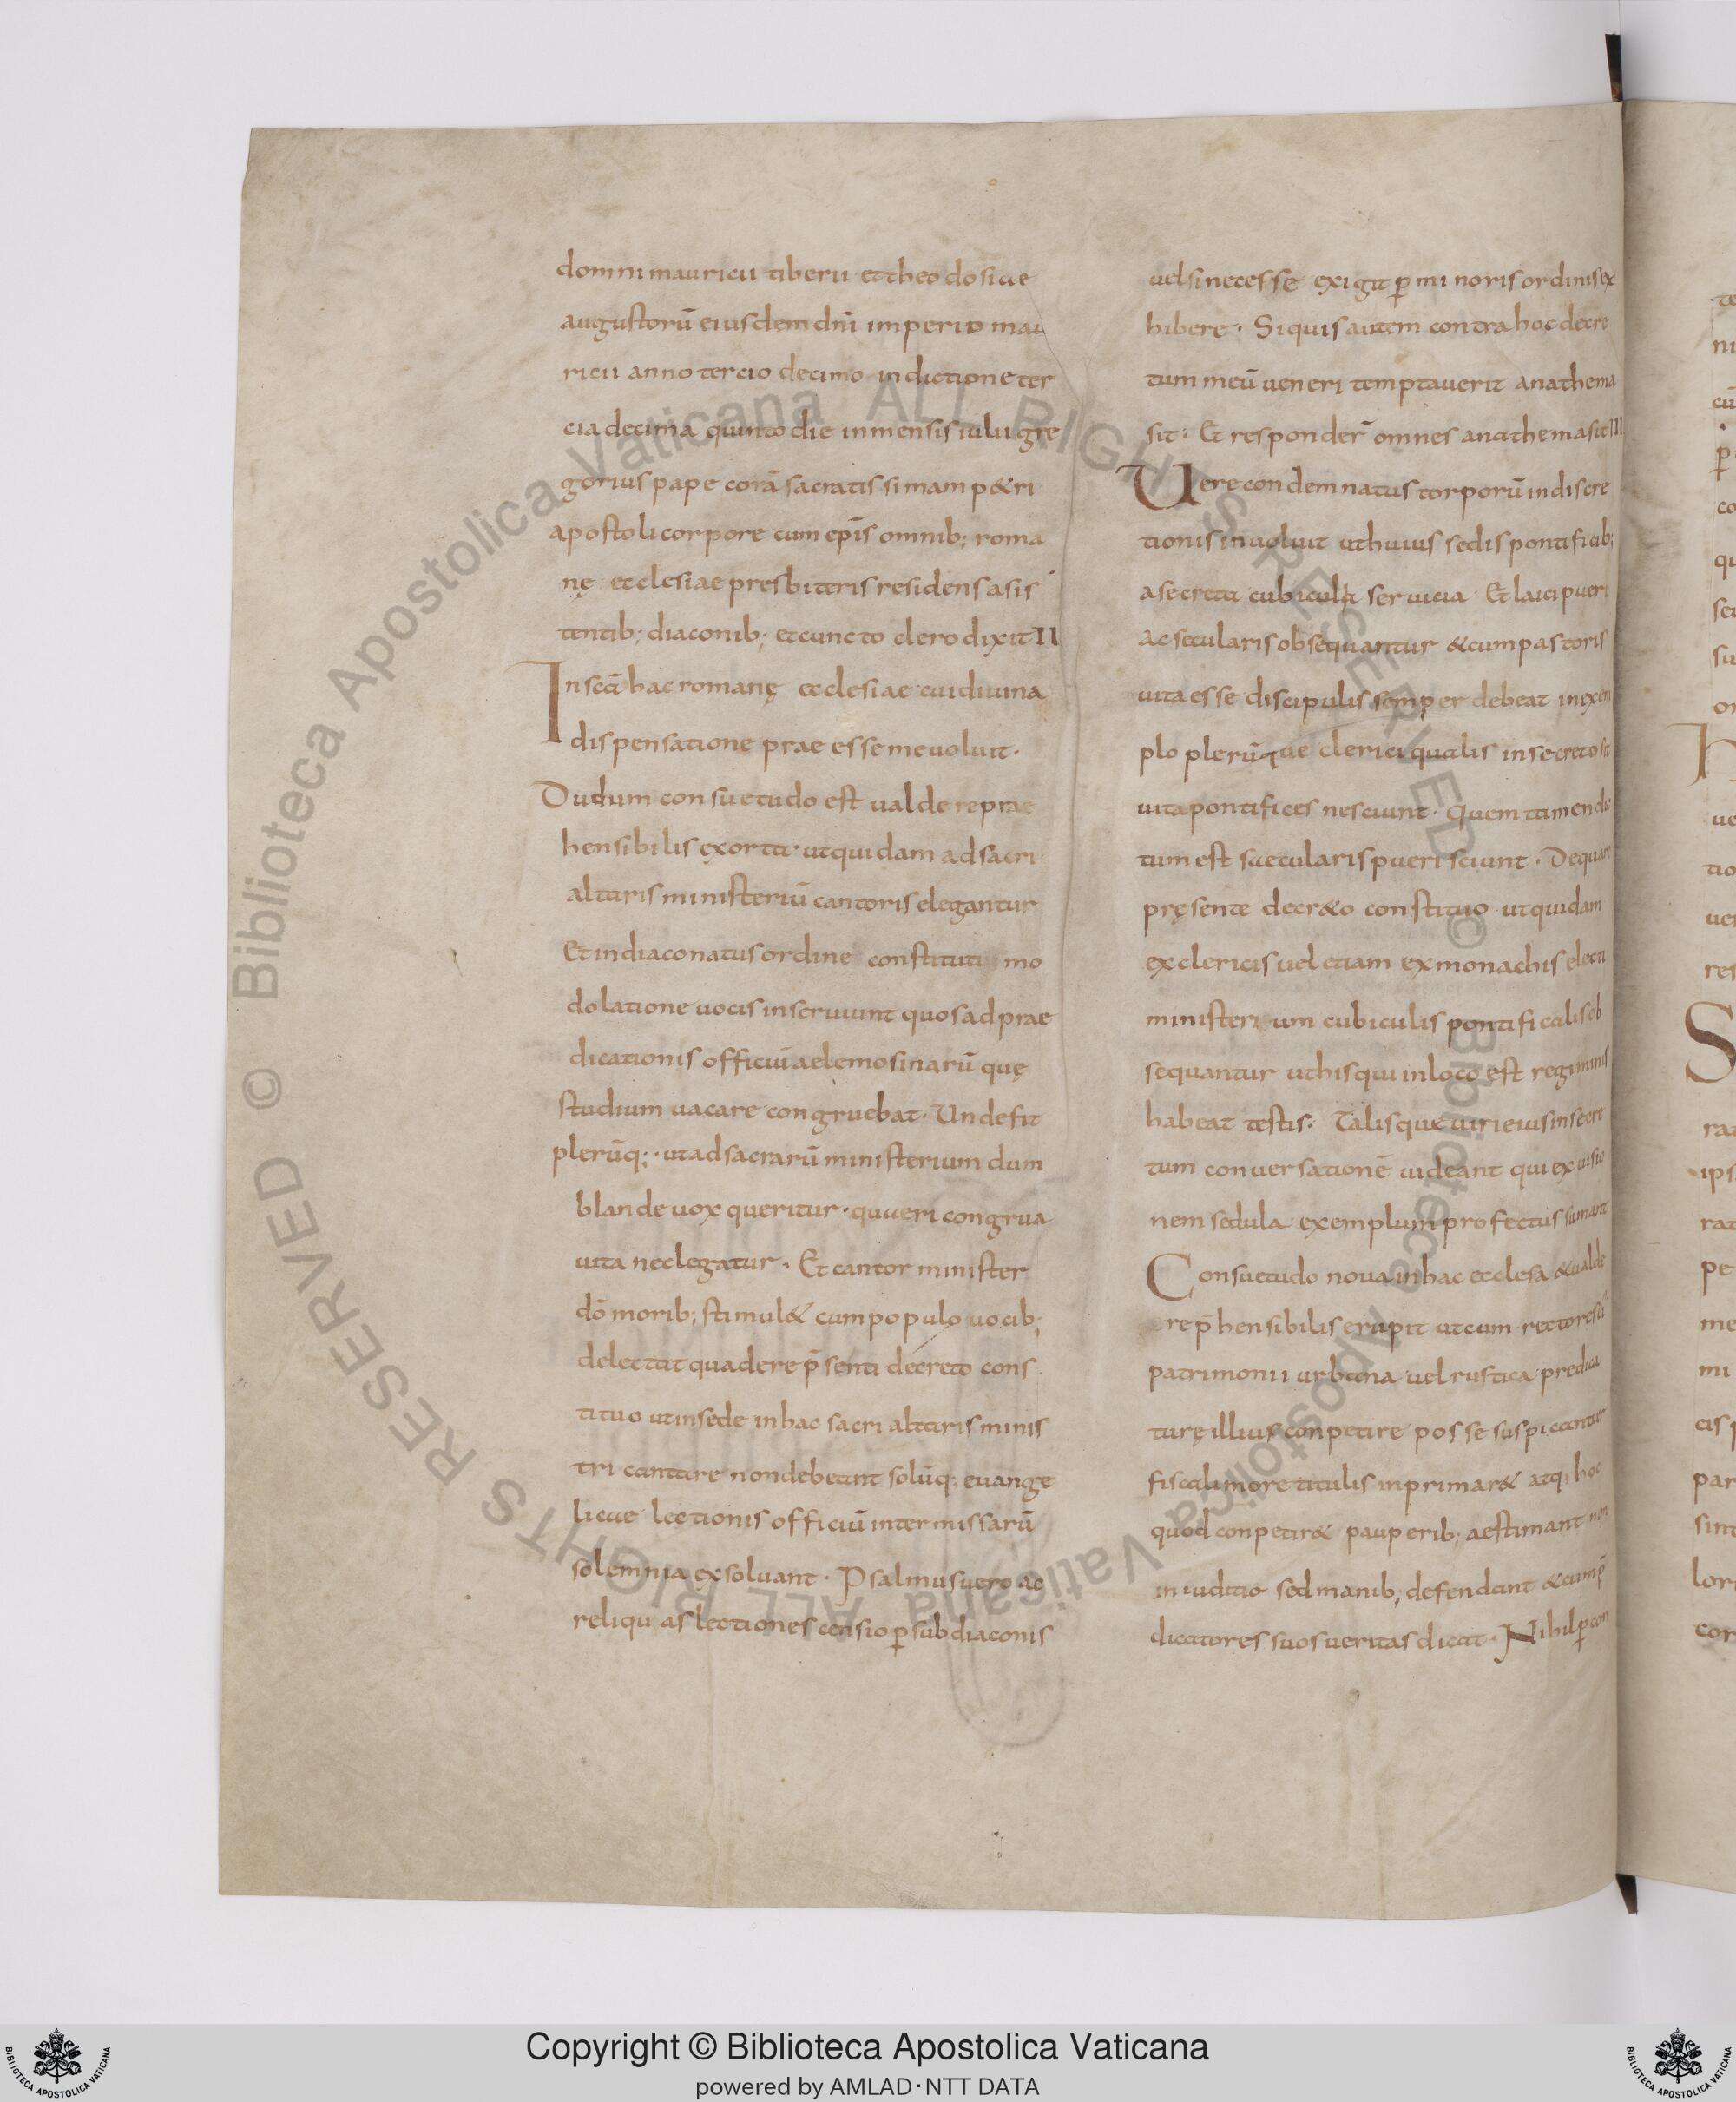 domni mauricii tiberii et theodosi ae
augustorū eiusdem dn̄i imperio mau
ricii anno tercio decimo indictione ter
cia decima quinto die in mensis iulii gre
gorius pape corā sacratissimam p&ri
apostoli corpore cum ep̄is omnib; roma
nę ecclesiae presbiteris residens asis
tentib; diaconib; et cuncto clero dixit II
In sc̄a hac romanę ecclesiae cui diuina
dispensatione prae esse me uoluit·
Dudum consuetudo est ualde reprae
hensibilis exorta· ut quidam ad sacri
altaris ministeriū cantoris elegantur
Et in diaconatus ordine constituti mo
dolatione uocis inseruiunt quos ad prae
dicationis officiū aelemosinarū quę
studium uacare congruebat· Unde fit
plerūq;· ut ad sacrarū ministerium dum
blande uox queritur· quaeri congrua
uita neclegatur· Et cantor minister
dō morib; stimul& cum populo uocib;
delectat qua de re p̄senti decreto cons
tituo ut in sede in hac sacri altaris minis
tri cantare non debeant solūq; euange
licae lectionis officiū inter missarū
solemnia exsoluant· Psalmus uero ac
reliquas lectiones censio ꝑ subdiaconis
uel si necesse exigit ꝑ minoris ordinis ex
hibere· Si quis autem contra hoc decre
tum meū ueneri temptauerit anathema
sit: Et responder̄ omnes anathema sit III
Uere condemnatus torporū indiscre
tionis inuoluit ut huius sedis pontificib;
a secreta cubicula seruicia Et laici pueri
ac secularis obsequantur & cum pastoris
uita esse discipulis semper debeat in exem
plo plerūque clerici qualis in secreto sit
uita pontifices nesciunt· Quem tamen dic
tum est saecularis pueri sciunt· De quare
pręsente decr&o constituo ut quidam
ex clericis uel etiam ex monachis electi
ministerium cubiculis pontificalis ob
sequantur ut his qui in loco est regiminis
habeat testis: Talisque uiri eius in secre
tum conuersationē uideant qui ex uisio
nem sedula exemplum profectus sumant
Consuetudo noua in hac ecclesa & ualde
rep̄hensibilis erupit ut cum rectores ei'
patrimonii urbana uel rustica predica
turę illius conpetire posse suspicantur
fiscali more titulis inprimar& atq; hoc
quod conpetir& pauperib; aestimant non
in iuditio sed manib; defendant & cum p̄
dicatores suos ueritas dicat· Nihil ꝑ con